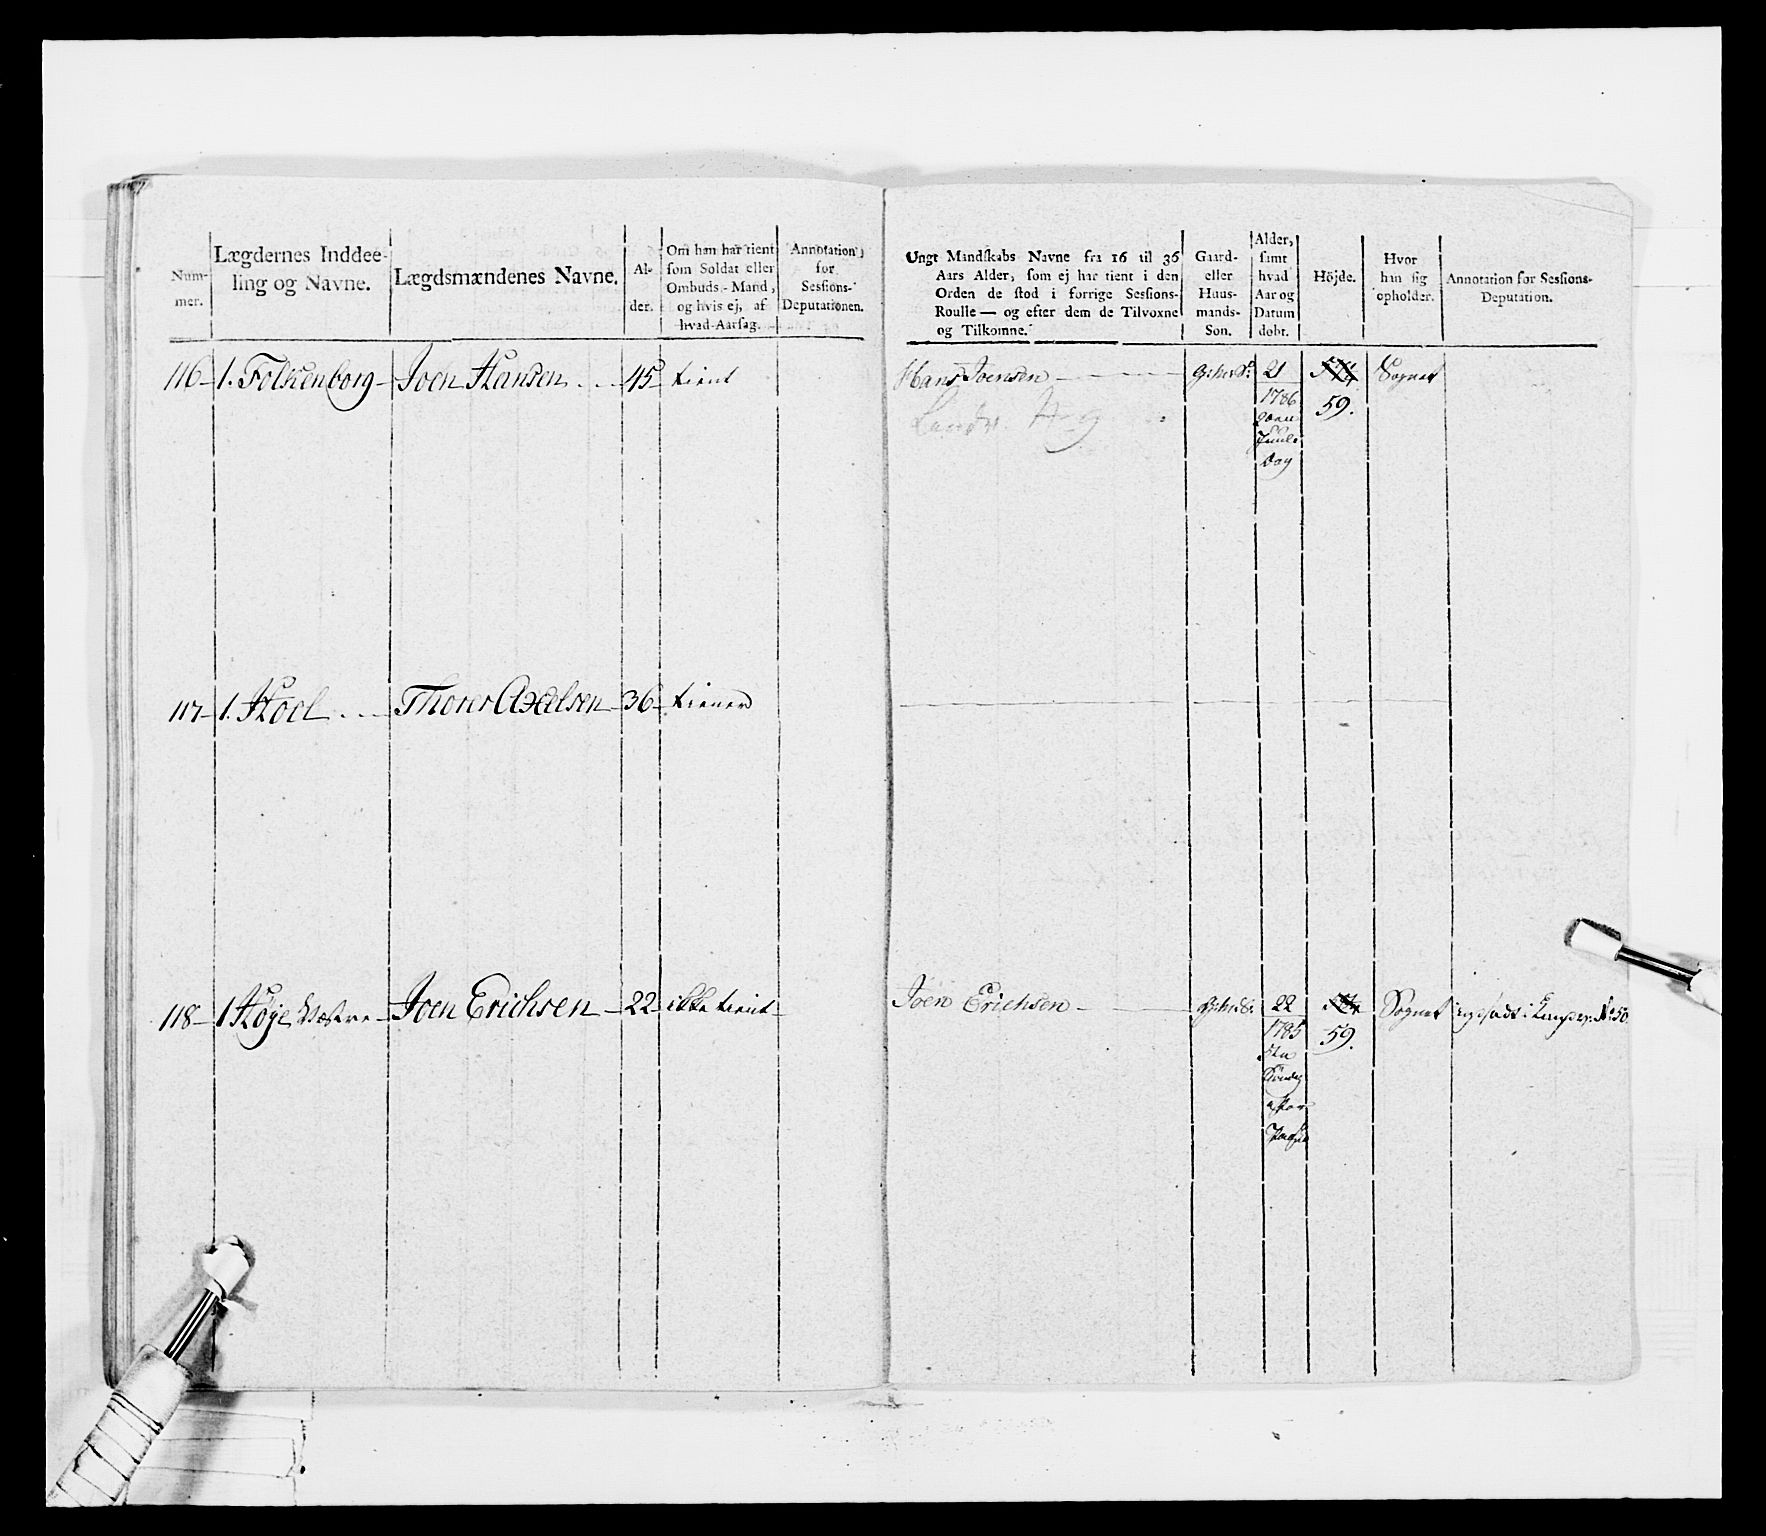 Num-
mer.
Lægdernes Inddee-
ling og Navne.
Lægdsmændenes Navne.
Al-
der.
Om han har tient
som Soldat eller
Ombuds-Mand,
og hvis ej, af
hvad Aarsag.
Annotation
for
Sessions-
Deputationen.
Ungt Mandskabs Navne fra 16 til 36
Aars Alder, som ej har tient i den
Orden de stod i forrige Sessions-
Roulle — og efter dem de Tilvoxne
og Tilkomne.
Gaard-
eller
Huus-
mands-
Søn.
Alder,
samt
hvad
Aar og
Datum
döbt.
Höjde.
Hvor
han sig
opholder.
Annotation for Sessions-
Deputation.
116 1. Folkenborg Joen Hansen 45 tient
Hans Joensen 21 Sognet
1786 59.
Juule
Dag
117 1. Hoel Thorer Axelsen 36 tiener
118 1 Høje Vestre Joen Erichsen 22 ikke tient
Joen Erichsen 22 Sognet
1785 59.
5te
Søndag
efter